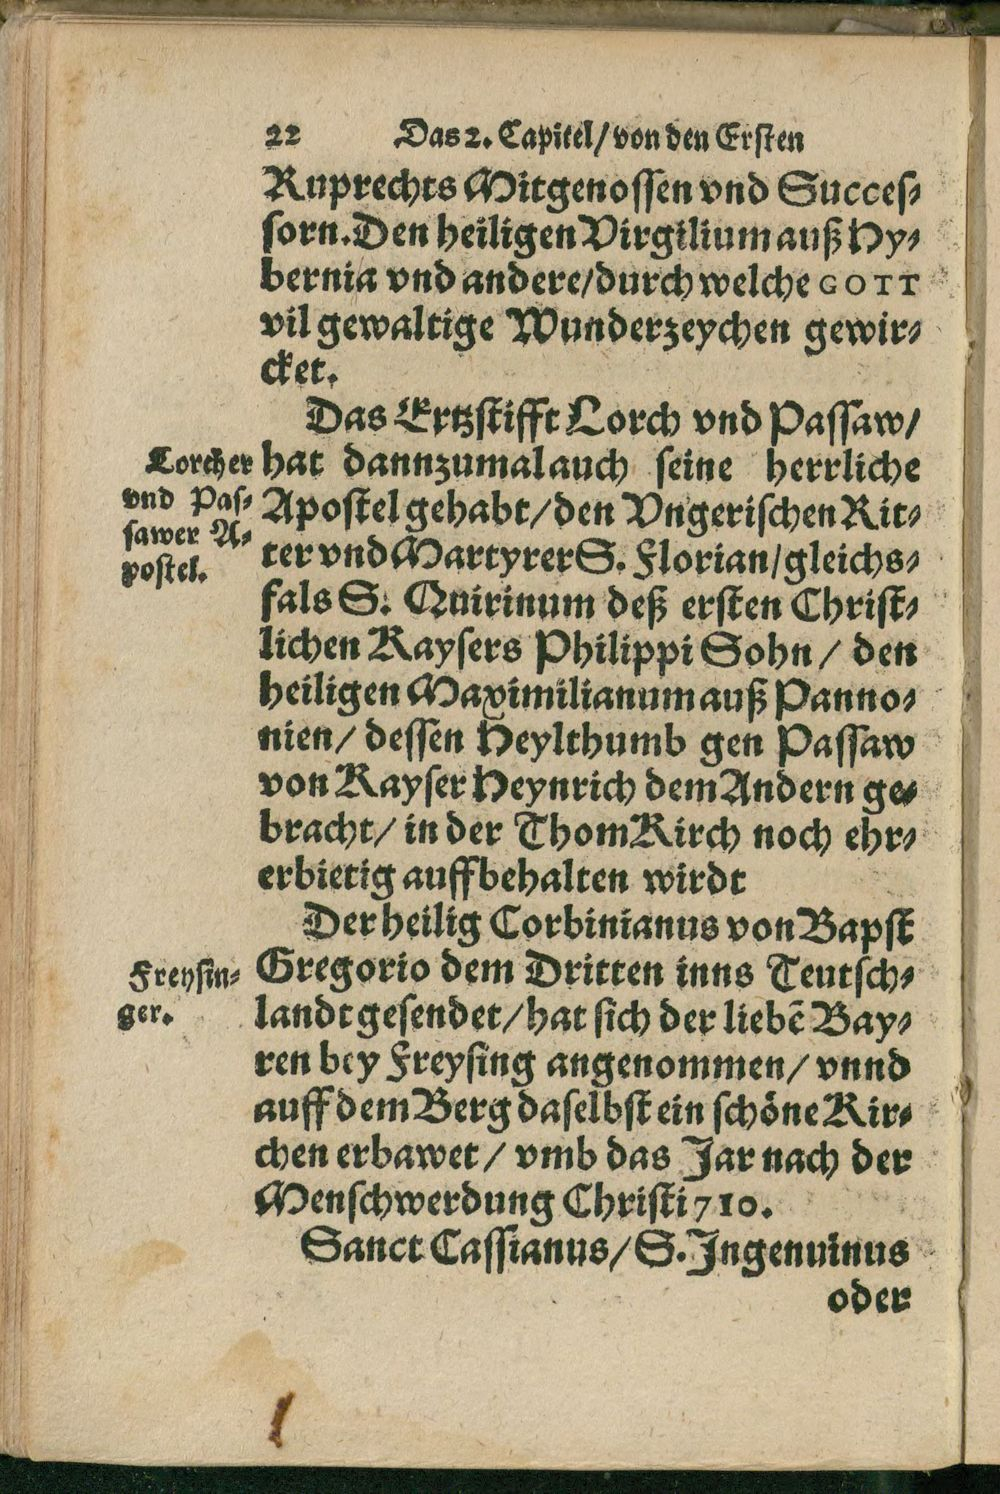 22 Das 2. Capitel/ von den Ersten
Ruprechts Mitgenossen vnd Succes-
sorn. Den heiligen Virgilium auß Hy-
bernia vnd andere/ durch welche GOTT
vil gewaltige Wunderzeychen gewir-
cket.
Das Ertzstifft Lorch vnd Passaw/
hat dannzumal auch seine herrliche
Apostel gehabt/ den Vngerischen Rit-
ter vnd Martyrer S. Florian/ gleichs-
fals S. Quirinum deß ersten Christ-
lichen Kaysers Philippi Sohn/ den
heiligen Maximilianum auß Panno-
nien/ dessen Heylthumb gen Passaw
von Kayser Heynrich dem Andern ge-
bracht/ in der ThomKirch noch ehr-
erbietig auffbehalten wirdt
Lorcher
vnd Pas-
sawer A-
postel.
Der heilig Corbinianus von Bapst
Gregorio dem Dritten inns Teutsch-
landt gesendet/ hat sich der liebẽ Bay-
ren bey Freysing angenommen/ vnnd
auff dem Berg daselbst ein schöne Kir-
chen erbawet/ vmb das Jar nach der
Menschwerdung Christi 710.
Freysin-
ger.
Sanct Cassianus/ S. Ingenuinus
oder